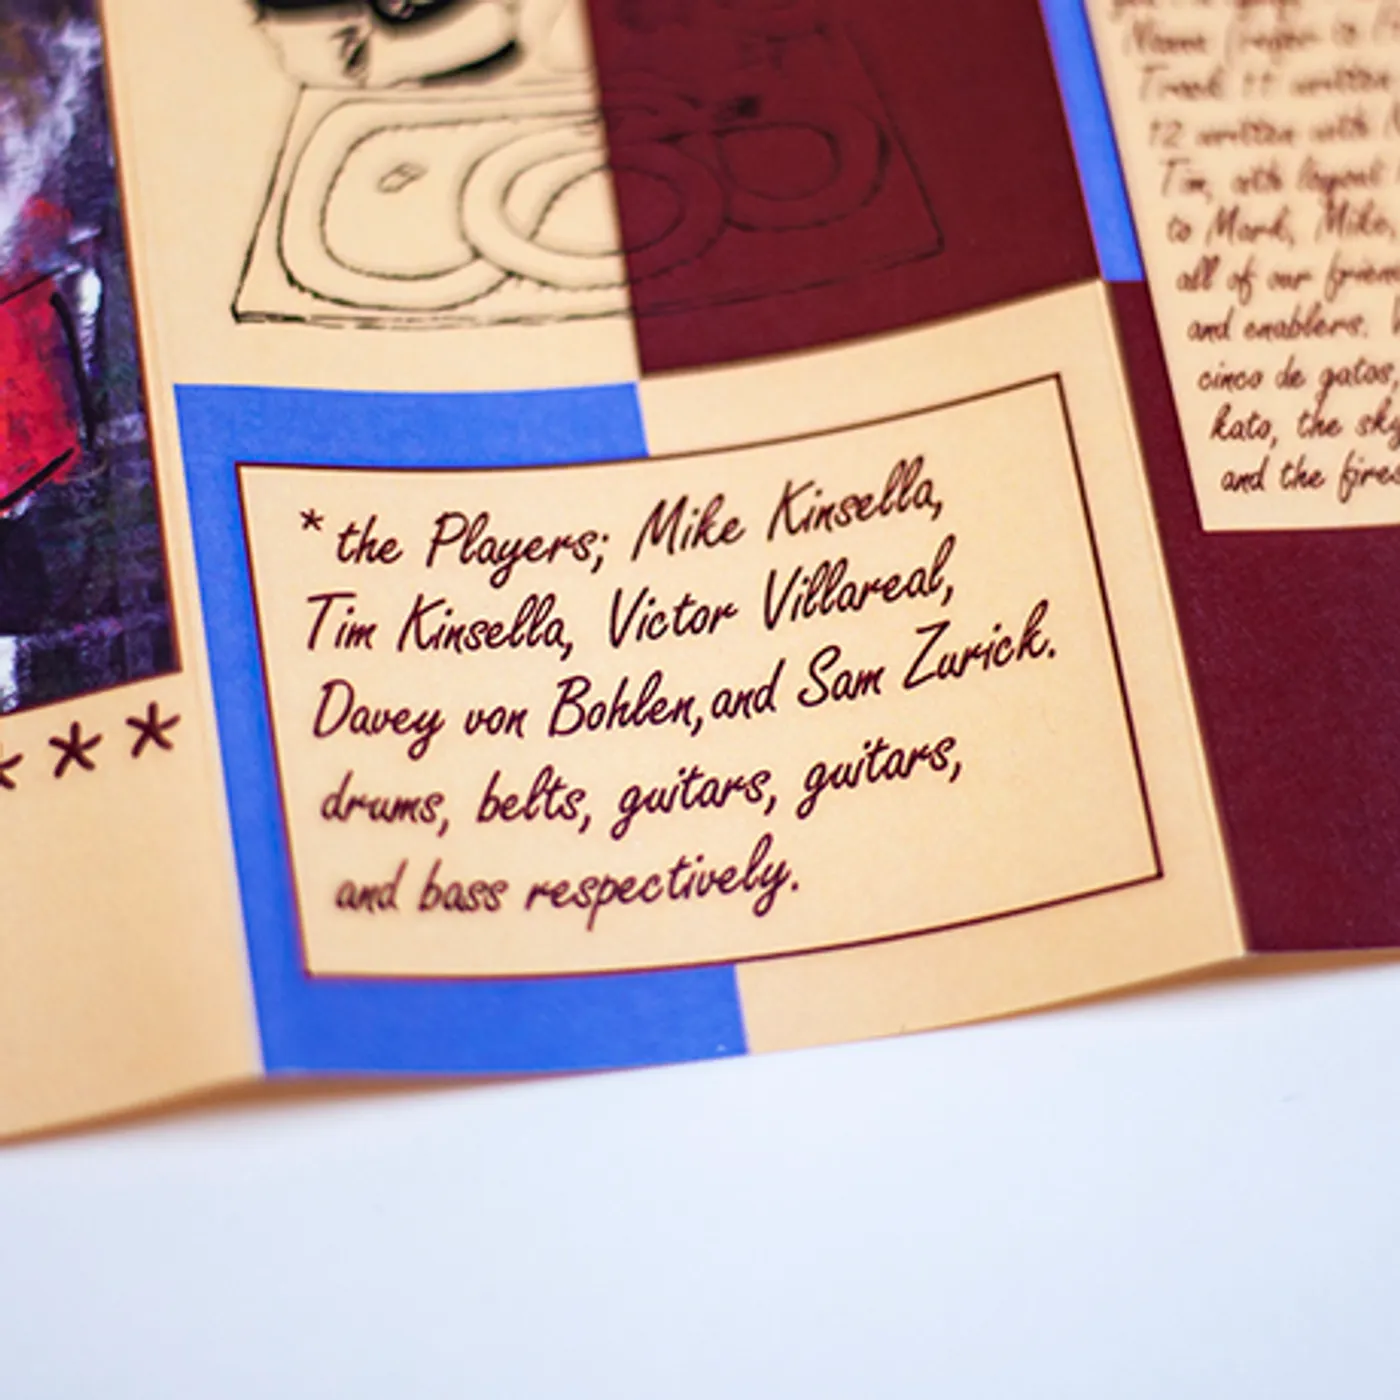 * the Players; Mike Kinsella,
Tim Kinsella, Victor Villareal,
Davey von Bohlen, and Sam Zurick.
drums, belts, guitars, guitars,
and bass respectively.
* * *
Track 11 written
12 written with
Tim, with layout
to Mark, Mike,
all of our friend
and enablers.
cinco de gatos,
kato, the sky
and the fires